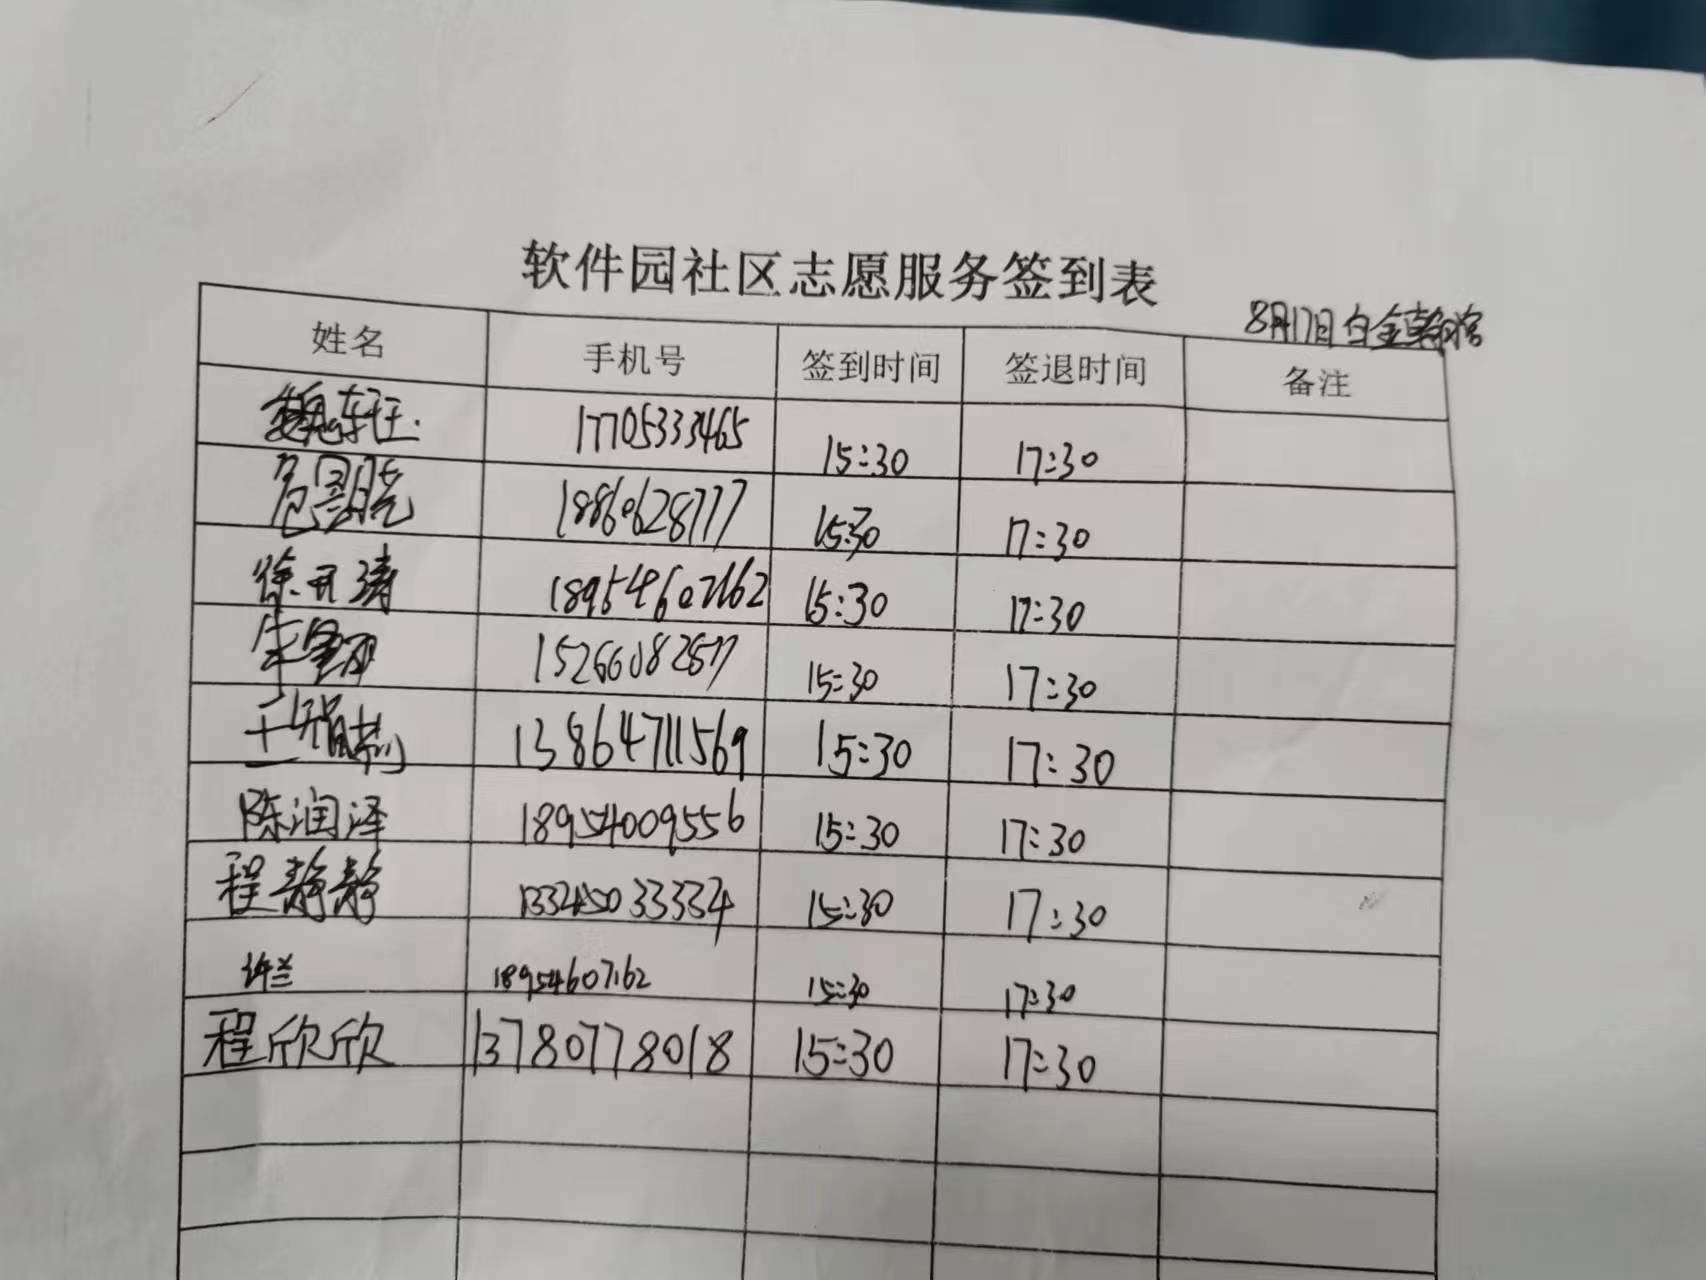 软件园社区志愿服务签到表
8月17日白金瀚宫
姓名 手机号 签到时间 签退时间 备注
17705333465 15:30 17:30
15:30 17:30
徐开涛 18954607162 15:30 17:30
15:30 17:30
13864711569 15:30 17:30
陈润泽 18954009556 15:30 17:30
程静静 15:30 17:30
许兰 18954607162 15:30 17:30
程欣欣 13780778018 15:30 17:30